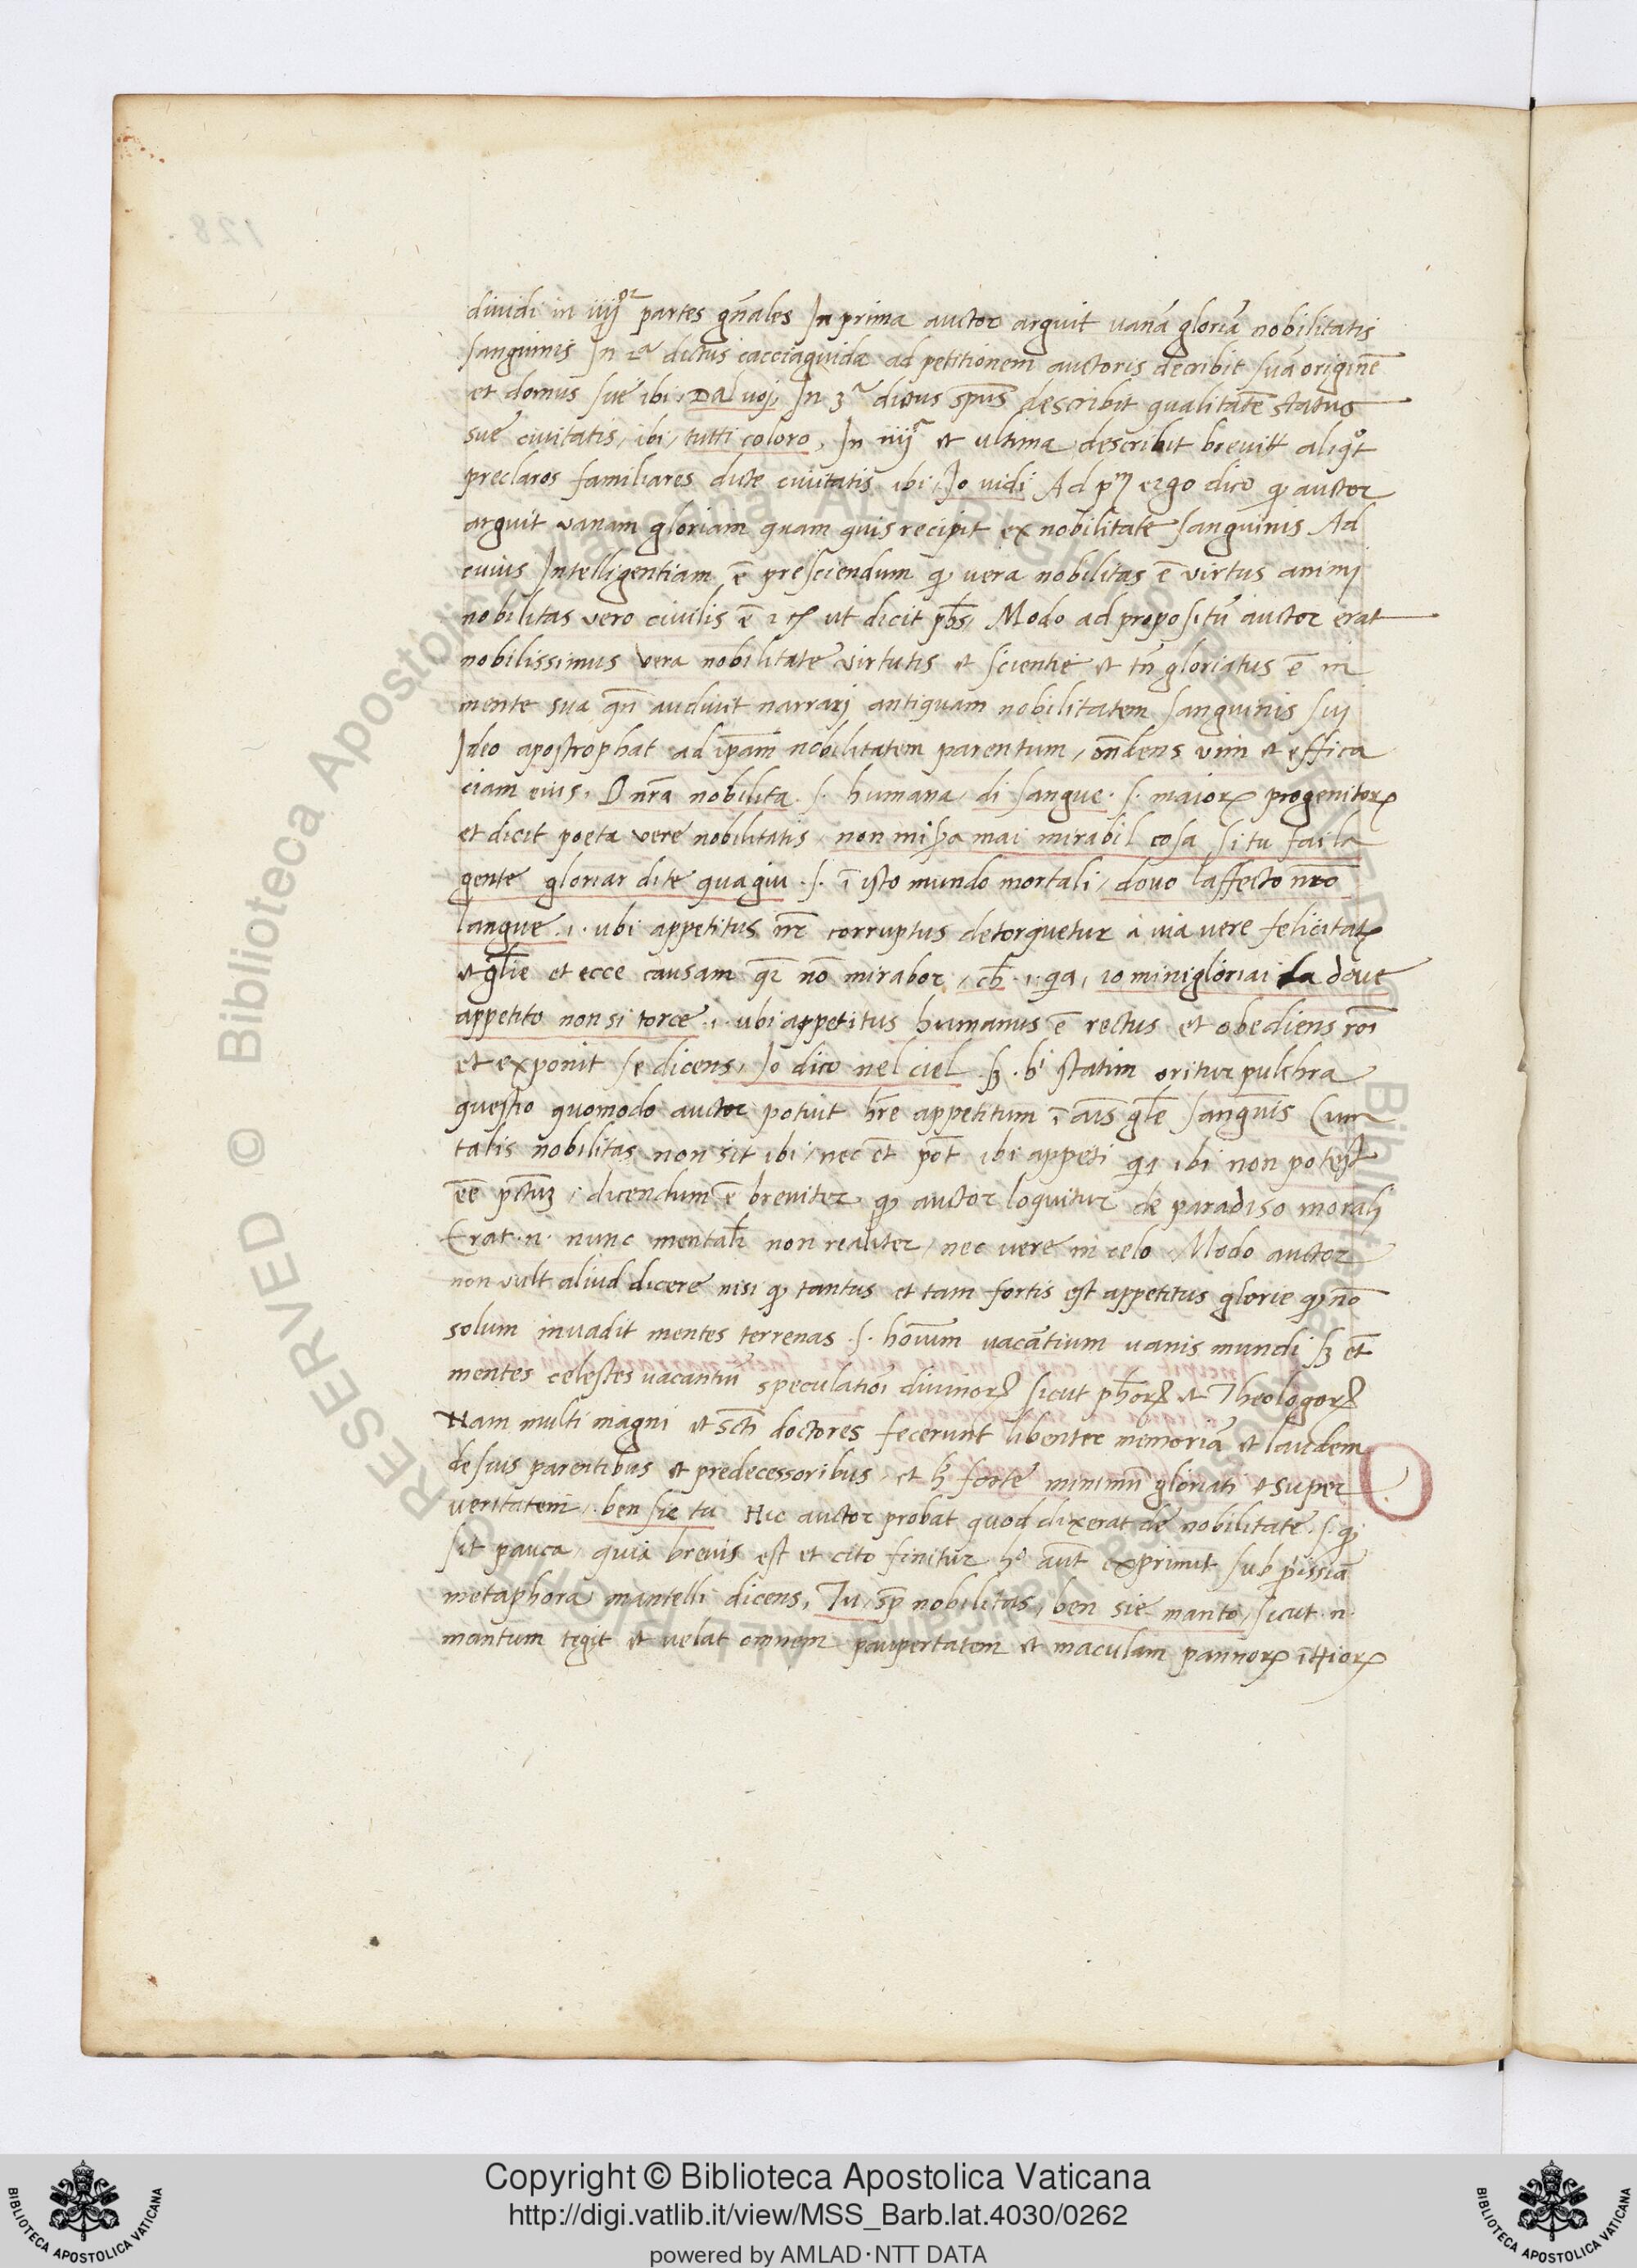 diuidi in iiij^or partes gn̄ales In prima auctor arguit uanā gloriā nobilitatis
sanguinis In 2ᵃ dictus cacciaguida ad petitionem auctoris decribit suā originē
et domus sue ibi, Dal uoj, In 3ᵃ dictus spūs describit qualitatē status
sue ciuitatis, ibi, tutti coloro, In iiijᵃ et ultima describit breuitt̄ aliqᵒt
preclaros familiares dicte ciuitatis ibi, Io uidi Ad pᵐ ergo dico ꝙ auctor
arguit vanam gloriam quam quis recipit ex nobilitate sanguinis Ad
cuius Intelligentiam ē presciendum ꝙ vera nobilitas ē virtus animj
nobilitas vero ciuilis ē ut dicit pħs, Modo ad propositū auctor erat
nobilissimus vera nobilitate virtutis et scientie et tn̄ gloriatus ē in
mente sua qn̄ audiuit narrarj antiquam nobilitatem sanguinis suj
Ideo apostrophat ad ip̄am nobilitatem parentum, on̄dens vim et effica
ciam eius, O nr̄a nobilita .s. humana, di sangue .s. maioꝝ progenitoꝝ
et dicit poeta vere nobilitatis, non mi ꝑa mai mirabil cosa si tu fai la
gente gloriar di te qua giu .s. ī isto mundo mortali, douo laffecto nr̄o
langue .i. ubi appetitus nr̄ corruptus detorquetur a uia uere felicitatꝭ
et gl̄ie et ecce causam qr̄ nō mirabor, cħ .i. qa, io mi ni gloriai la doue
appetito non si torce .i. ubi appetitus humanus ē rectus et obediens rōi
et exponit se dicens, Io dico nel ciel sꝫ . statim oritur pulchra
questio quomodo auctor potuit hr̄e appetitum gl̄e sanguis Cum
talis nobilitas non sit ibi, nec et̄ pōt ibi appeti qa ibi non potest
eē pctūꝫ, dicendum ē breuiter ꝙ auctor loquitur de paradiso moralj
Erat .n. nunc mentalr̄ non realiter, nec vere in celo, Modo auctor
non vult aliud dicere nisi ꝙ tantus et tam fortis est appetitus glorie ꝙ nō
solum inuadit mentes terrenas .s. hoīum uacātium uanis mundi sꝫ et̄
mentes celestes uacantiū speculatiōi diuinoꝝ sicut pħoꝝ et Theologoꝝ
Nam multi magni et sc̄ti doctores fecerunt libenter memoriā et laudem
de suis parentibus et predecessoribus, et forte minimū gloriati et super
veritatem, ben sie tu Hic auctor probat quod dixerat de nobilitate .s. ꝙ
sit pauca, quia breuis est et cito finitur hᵒ aut̄ exprimit sub ꝓissiā
metaphora mantelli dicens, Tu, sp̄ nobilitas, ben sie manto, sicut .n.
mantum tegit et uelat omnem paupertatem et maculam pannoꝝ
128
Copyright © Biblioteca Apostolica Vaticana
http://digi.vatlib.it/view/MSS_Barb.lat.4030/0262
powered by AMLAD·NTT DATA
BIBLIOTECA APOSTOLICA VATICANA
BIBLIOTECA APOSTOLICA VATICANA